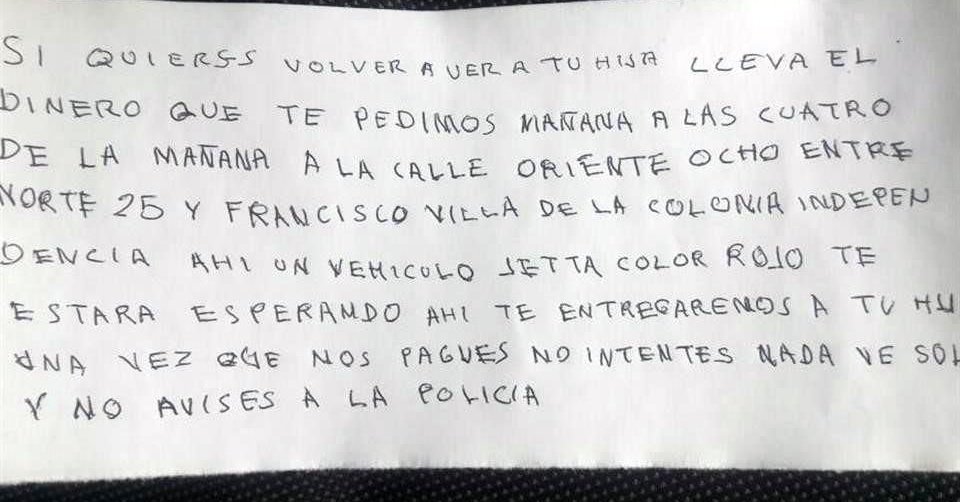 SI QUIERSS VOLVER A VER A TU HIJA LLEVA EL
DINERO QUE TE PEDIMOS MAÑANA A LAS CUATRO
DE LA MAÑANA A LA CALLE ORIENTE OCHO ENTRE
NORTE 25 Y FRANCISCO VILLA DE LA COLONIA INDEPEN
DENCIA AHI UN VEHICULO JETTA COLOR ROJO TE
ESTARA ESPERANDO AHI TE ENTREGAREMOS A TU HIJ
UNA VEZ QUE NOS PAGUES NO INTENTES NADA VE SOL
Y NO AVISES A LA POLICIA